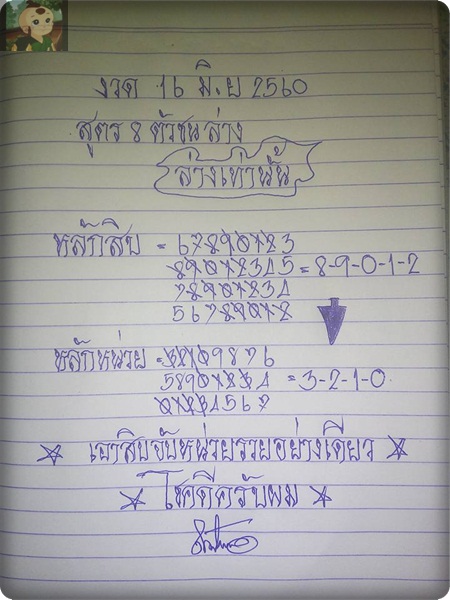 งวด 16 มิ.ย 2560
สูตร 8 ตัวชน ล่าง
ล่างเท่านั้น
หลักสิบ = 67890123
89012345 = 8-9-0-1-2
78901234
56789012
หลักหน่วย = 32109876
58901234 = 3-2-1-0
01234567
เอาสิบจับหน่วยรวยอย่างเดียว
โชคดีครับผม